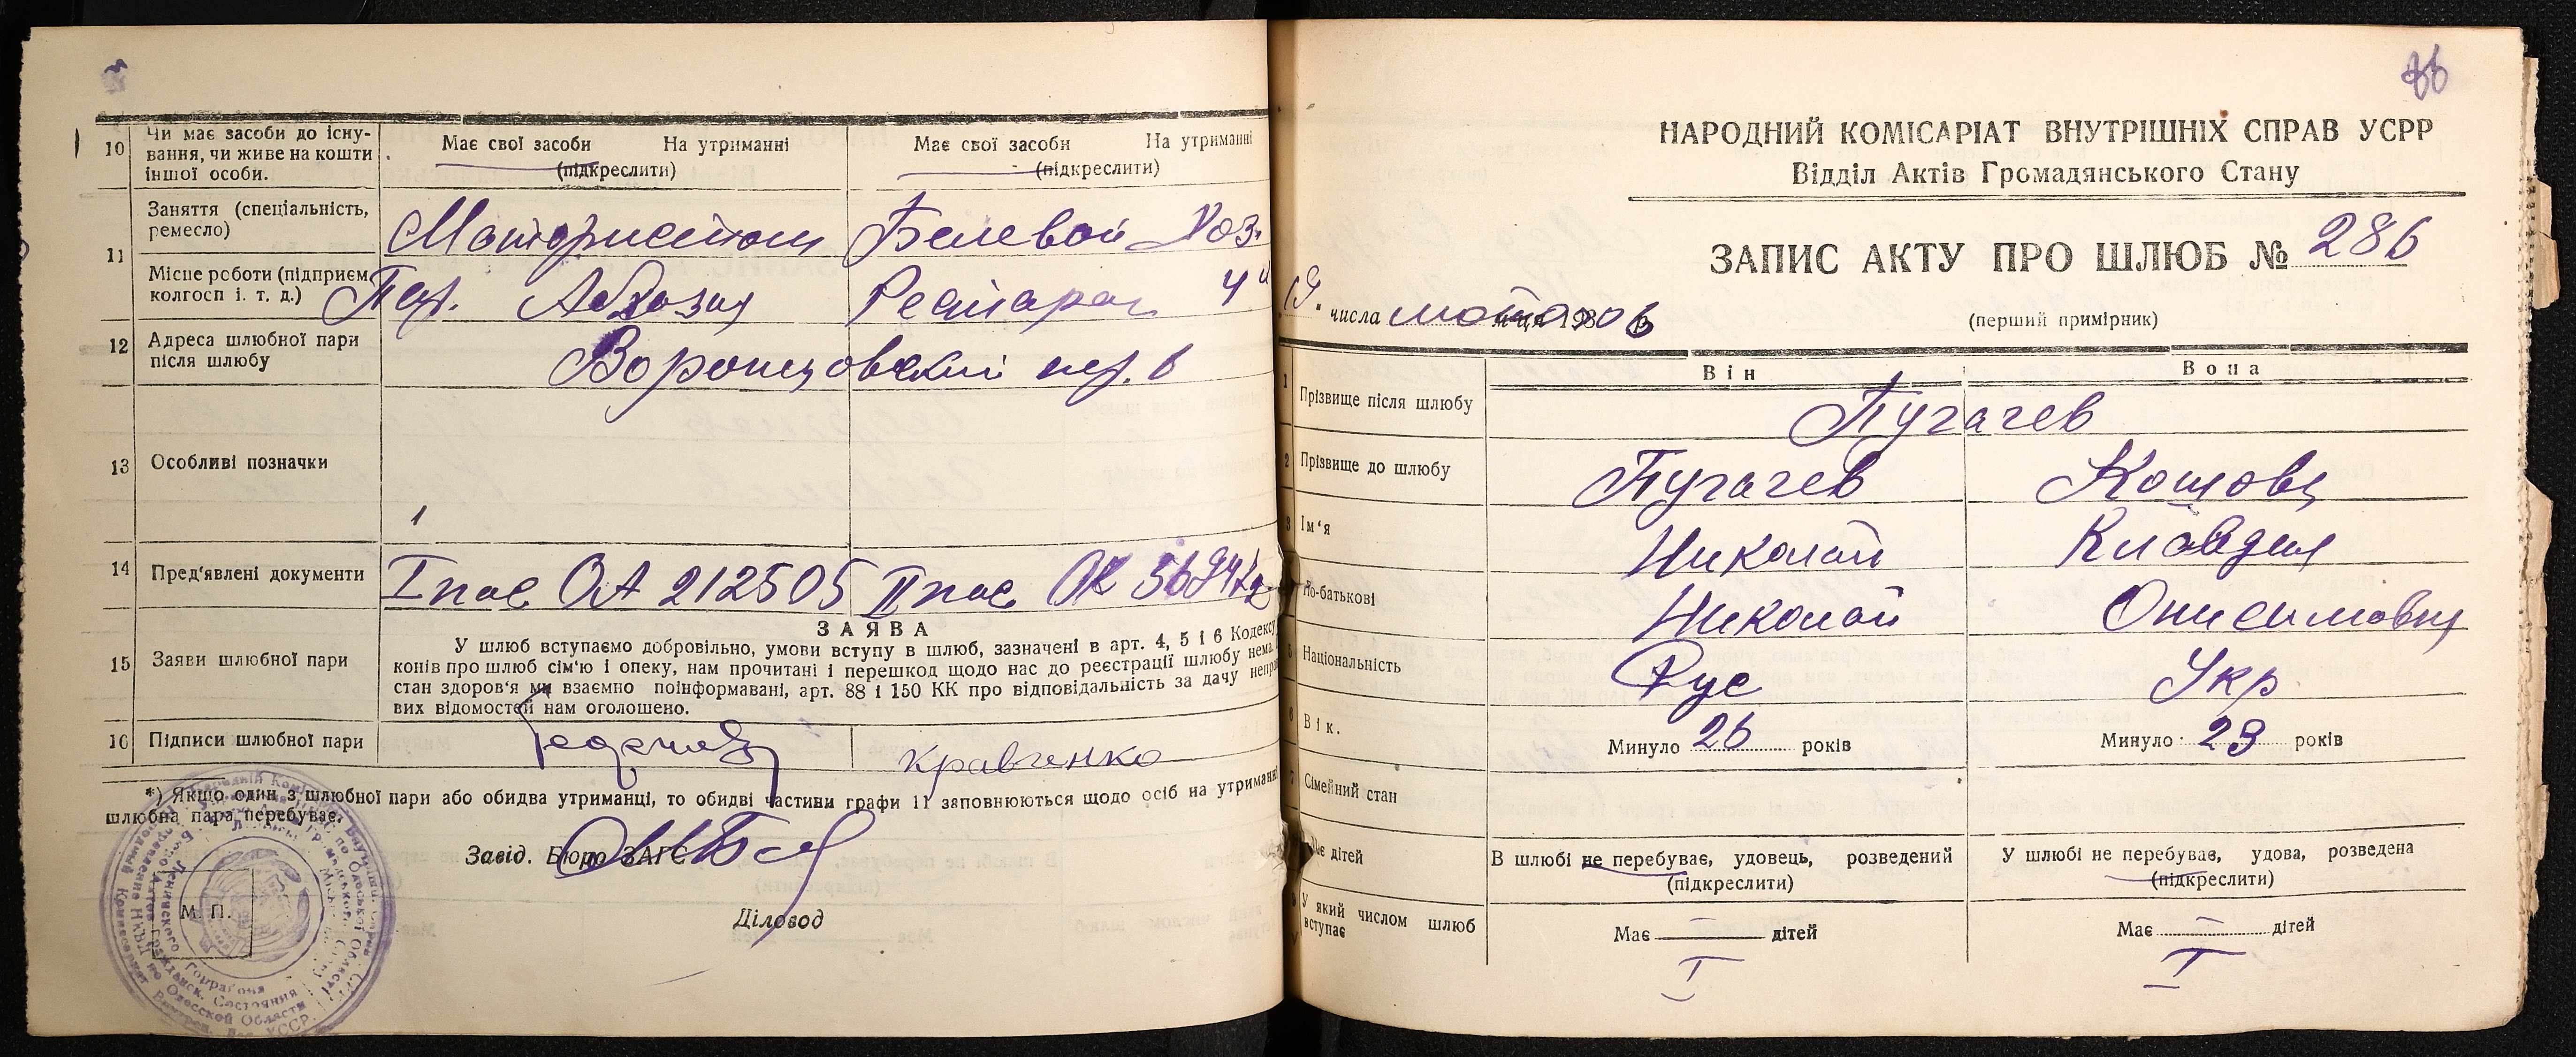 10 Чи має засоби до існу-
вання, чи живе на кошти
іншої особи.
Має свої засоби На утриманні
(підкреслити)
Має свої засоби На утриманні
(підкреслити)
11 Заняття (спеціальність,
ремесло)
Мотористом
Белевой Хоз.
Місце роботи (підприєм
колгосп і. т. д.)
Пар. Абхазия
Ресторан
12 Адреса шлюбної пари
після шлюбу
Воронцовский пер. 6
13 Особливі позначки
14 Пред'явлені документи
I пас ОА 212505
II пас ОК
15 Заяви шлюбної пари
ЗАЯВА
У шлюб вступаємо добровільно, умови вступу в шлюб, зазначені в арт. 4, 5 і 6 Кодексу
конів про шлюб сім'ю і опеку, нам прочитані і перешкод щодо нас до реєстрації шлюбу нема.
стан здоров'я ми взаємно поінформавані, арт. 88 і 150 КК про відповідальність за дачу неправ
вих відомостей нам оголошено.
16 Підписи шлюбної пари
Кравченко
*) Якщо один з шлюбної пари або обидва утриманці, то обидві частини графи 11 заповнюються щодо осіб на утриманні
шлюбна пара перебуває.
Завід. Бюро ЗАГС
М. П.
Діловод
86
НАРОДНИЙ КОМІСАРІАТ ВНУТРІШНІХ СПРАВ УСРР
Відділ Актів Громадянського Стану
ЗАПИС АКТУ ПРО ШЛЮБ № 286
19 " числа м-ця 193 6 р.
(перший примірник)
Він Вона
1 Прізвище після шлюбу
Пугачев
2 Прізвище до шлюбу
Пугачев
3 Ім'я
Николай Клавдия
По-батькові
Николай Онисимовна
5 Національність
Рус Укр
6 Вік.
Минуло 26 років
Минуло 23 років
7 Сімейний стан
В шлюбі не перебуває, удовець, розведений
(підкреслити)
У шлюбі не перебуває, удова, розведена
(підкреслити)
дітей
Має — дітей
Має — дітей
У який числом шлюб
вступає
I I